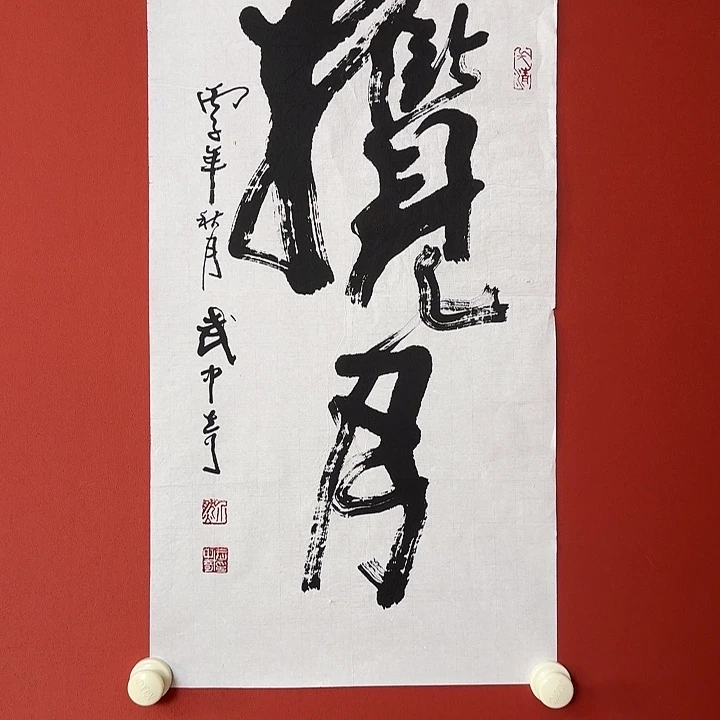 攬月
丙子年秋月 武中奇